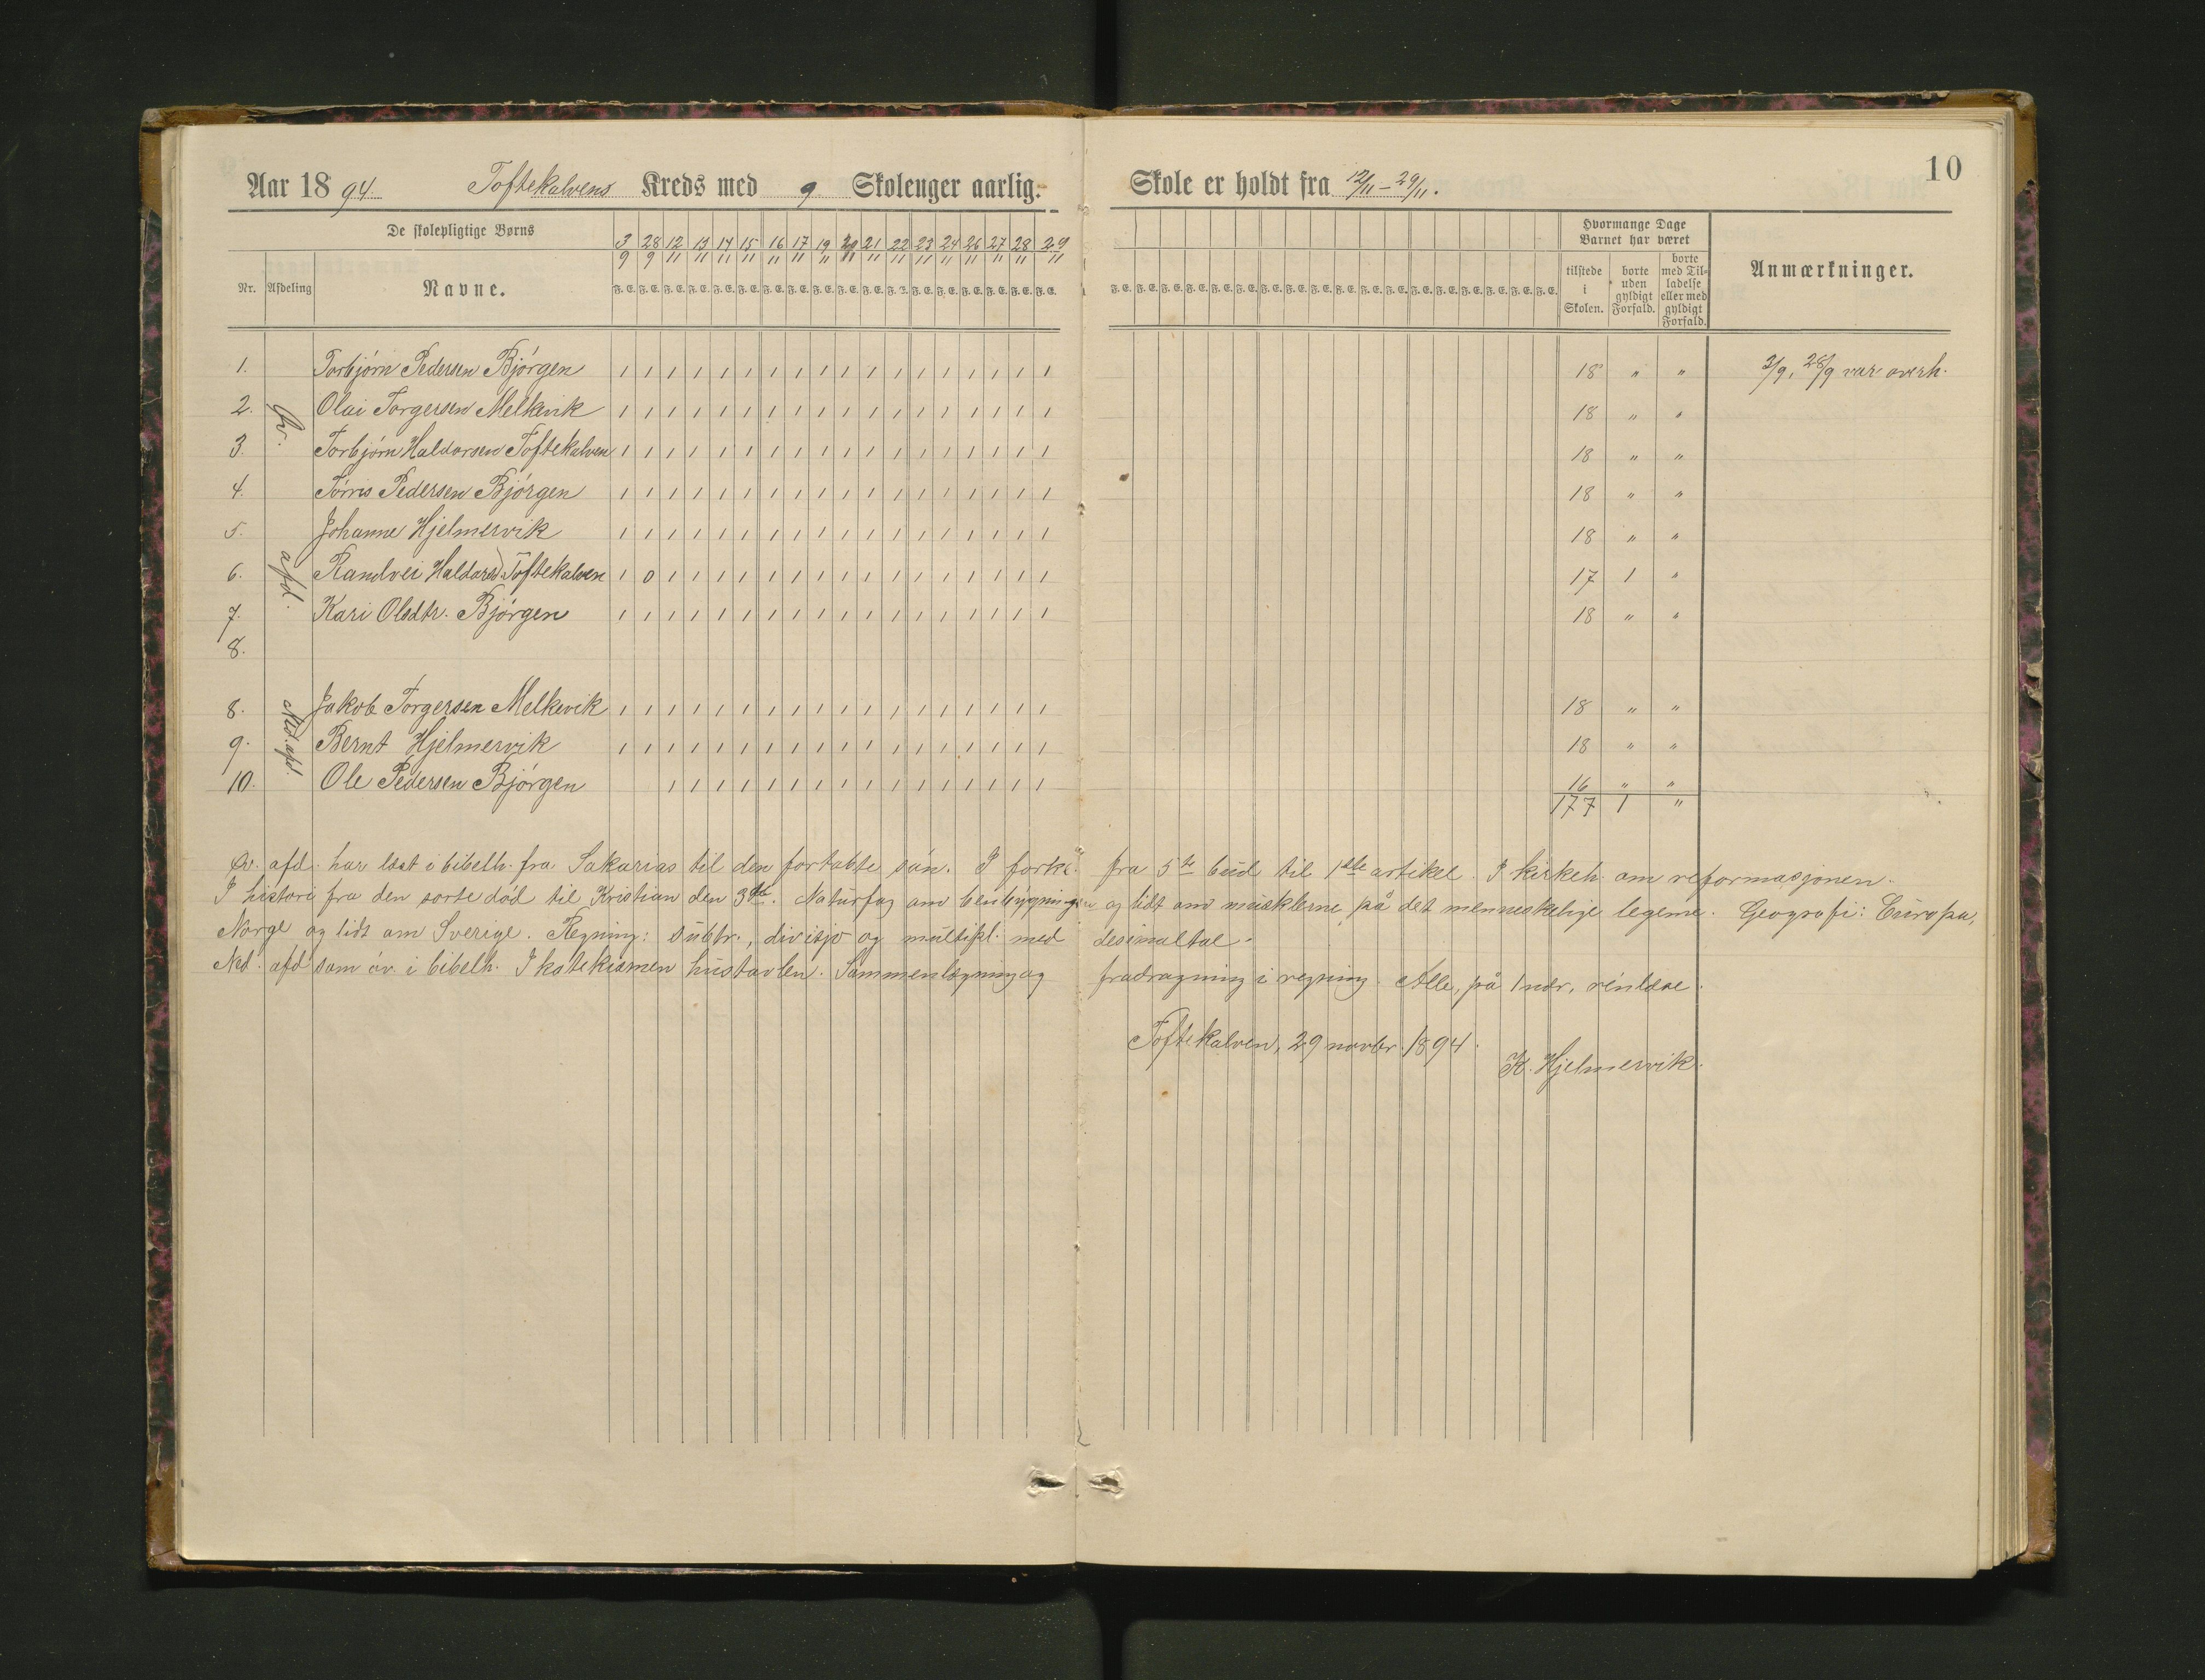 10
Aar 1894 Toftekalvens Kreds med 9 Skoleuger aarlig. Skole er holdt fra 12/11 – 29/11.
De skolepligtige Børns
Hvormange Dage Barnet har været
Nr. Afdeling Navne.
3/9 28/9 12/11 13/11 14/11 15/11 16/11 17/11 19/11 20/11 21/11 22/11 23/11 24/11 26/11 27/11 28/11 29/11
F. E. F. E. F. E. F. E. F. E. F. E. F. E. F. E. F. E. F. E. F. E. F. E. F. E. F. E. F. E. F. E. F. E. F. E.
F. E. F. E. F. E. F. E. F. E. F. E. F. E. F. E. F. E. F. E. F. E. F. E. F. E. F. E. F. E. F. E. F. E. F. E.
tilstede i Skolen. borte uden gyldigt Forfald. borte med Tilladelse eller med gyldigt Forfald.
Anmærkninger.
Øv. afd.
1. Torbjørn Pedersen Bjørgen 1 1 1 1 1 1 1 1 1 1 1 1 1 1 1 1 1 1 18 " " 3/9, 28/9 var overh.
2. Olai Torgersen Melkevik 1 1 1 1 1 1 1 1 1 1 1 1 1 1 1 1 1 1 18 " "
3. Torbjørn Haldorsen Toftekalven 1 1 1 1 1 1 1 1 1 1 1 1 1 1 1 1 1 1 18 " "
4. Tørris Pedersen Bjørgen 1 1 1 1 1 1 1 1 1 1 1 1 1 1 1 1 1 1 18 " "
5. Johanne Hjelmervik 1 1 1 1 1 1 1 1 1 1 1 1 1 1 1 1 1 1 18 " "
6. Randvei Haldorsd. Toftekalven 1 0 1 1 1 1 1 1 1 1 1 1 1 1 1 1 1 1 17 1 "
7. Kari Olsdtr. Bjørgen 1 1 1 1 1 1 1 1 1 1 1 1 1 1 1 1 1 1 18 " "
8.
Ned. afd.
8. Jakob Torgersen Melkevik 1 1 1 1 1 1 1 1 1 1 1 1 1 1 1 1 1 1 18 " "
9. Bernt Hjelmervik 1 1 1 1 1 1 1 1 1 1 1 1 1 1 1 1 1 1 18 " "
10. Ole Pedersen Bjørgen 1 1 1 1 1 1 1 1 1 1 1 1 1 1 1 1 16 " "
177 1 "
Øv. afd. har læst i bibelh. fra Sakarias til den fortabte søn. I forkl. fra 5te bud til 1ste artikel. I kirkeh. om reformasjonen.
I histori fra den sorte død til Kristian den 3die. Naturfag om benbygningen og lidt om musklerne på det menneskelige legeme. Geografi: Europa,
Norge og lidt om Sverige. Regning: subtr., divisjo og multipl. med desimaltal.
Ned. afd som øv. i bibelh. I katekismen hustavlen. Sammenlægning og fradragning i regning. Alle, på 1 nær, rénlæse.
Toftekalven, 29 novbr. 1894.
K. Hjelmervik.